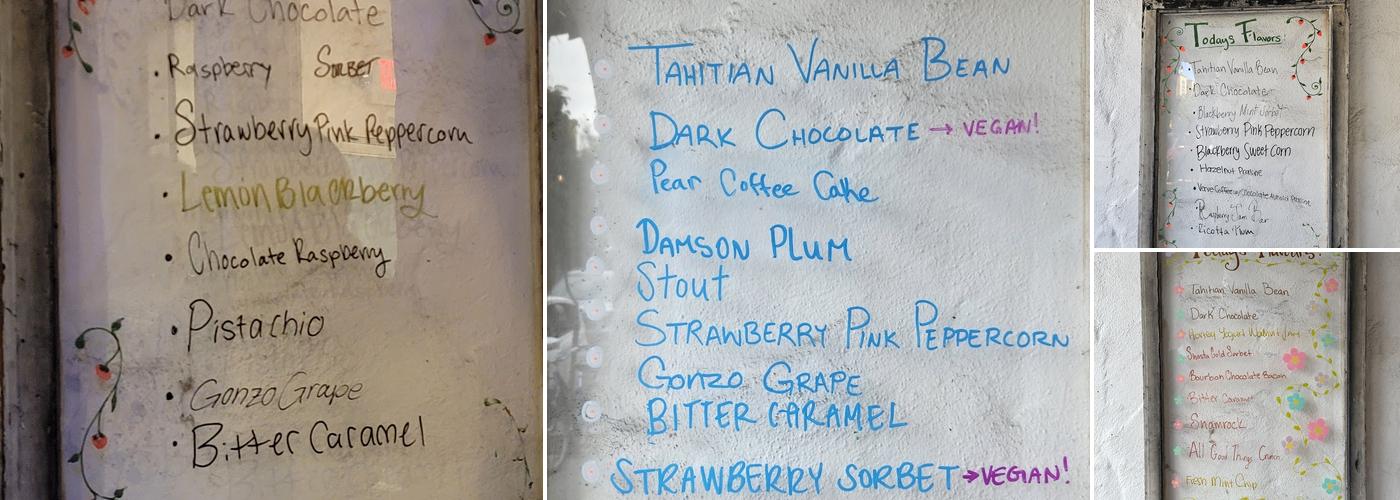 Dark Chocolate
Raspberry Sorbet
Strawberry Pink Peppercorn
Lemon Blackberry
Chocolate Raspberry
Pistachio
Gonzo Grape
Bitter Caramel
TAHITIAN VANILLA BEAN
DARK CHOCOLATE → VEGAN!
Pear Coffee Cake
DAMSON PLUM
Stout
STRAWBERRY PINK PEPPERCORN
GONZO GRAPE
BITTER CARAMEL
STRAWBERRY SORBET → VEGAN!
Todays Flavors:
Tahitian Vanilla Bean
Dark Chocolate
Blackberry Mint Sorbet
Strawberry Pink Peppercorn
Blackberry Sweet Corn
Hazelnut Praline
Verve Coffee w/ Chocolate Almond Praline
Raspberry Jam Bar
Ricotta Plum
Todays Flavors:
Tahitian Vanilla Bean
Dark Chocolate
Honey Yogurt Walnut Jam
Shasta Gold Sorbet
Bourbon Chocolate Bacon
Bitter Caramel
Shamrock
All Good Things Crunch
Fresh Mint Chip